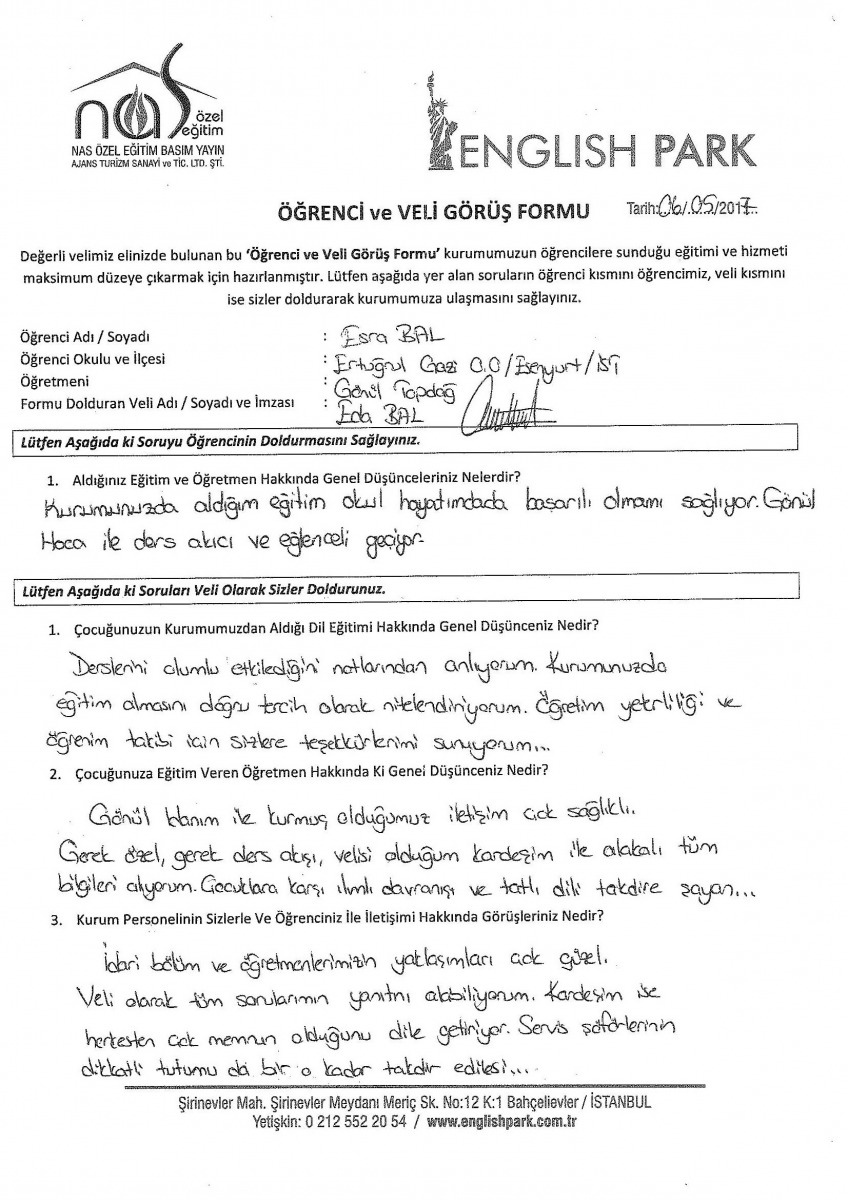 nas özel eğitim
NAS ÖZEL EĞİTİM BASIM YAYIN
AJANS TURİZM SANAYİ ve TİC. LTD. ŞTİ.
ENGLISH PARK
ÖĞRENCİ ve VELİ GÖRÜŞ FORMU Tarih:06/05/2017
Değerli velimiz elinizde bulunan bu ‘Öğrenci ve Veli Görüş Formu’ kurumumuzun öğrencilere sunduğu eğitimi ve hizmeti
maksimum düzeye çıkarmak için hazırlanmıştır. Lütfen aşağıda yer alan soruların öğrenci kısmını öğrencimiz, veli kısmını
ise sizler doldurarak kurumumuza ulaşmasını sağlayınız.
Öğrenci Adı / Soyadı : Esra BAL
Öğrenci Okulu ve İlçesi : Ertuğrul Gazi O.O/Esenyurt/İST
Öğretmeni : Gönül Topdağ
Formu Dolduran Veli Adı / Soyadı ve İmzası : Eda BAL
Lütfen Aşağıda ki Soruyu Öğrencinin Doldurmasını Sağlayınız.
1. Aldığınız Eğitim ve Öğretmen Hakkında Genel Düşünceleriniz Nelerdir?
Kurumunuzda aldığım eğitim okul hayatımdada başarılı olmamı sağlıyor. Gönül
Hoca ile ders akıcı ve eğlenceli geçiyor.
Lütfen Aşağıda ki Soruları Veli Olarak Sizler Doldurunuz.
1. Çocuğunuzun Kurumumuzdan Aldığı Dil Eğitimi Hakkında Genel Düşünceniz Nedir?
Derslerini olumlu etkilediğini notlarından anlıyorum. Kurumunuzda
eğitim almasını doğru tercih olarak nitelendiriyorum. Öğretim yeterliliği ve
öğrenim takibi için sizlere teşekkürlerimi sunuyorum...
2. Çocuğunuza Eğitim Veren Öğretmen Hakkında Ki Genel Düşünceniz Nedir?
Gönül Hanım ile kurmuş olduğumuz iletişim çok sağlıklı.
Gerek özel, gerek ders akışı, velisi olduğum kardeşim ile alakalı tüm
bilgileri alıyorum. Çocuklara karşı ılımlı davranışı ve tatlı dili takdire şayan...
3. Kurum Personelinin Sizlerle Ve Öğrenciniz İle İletişimi Hakkında Görüşleriniz Nedir?
İdari bölüm ve öğretmenlerimizin yaklaşımları çok güzel.
Veli olarak tüm sorularımın yanıtını alabiliyorum. Kardeşim ise
herkesten çok memnun olduğunu dile getiriyor. Servis şöförlerinin
dikkatli tutumu da bir o kadar takdir edilesi...
Şirinevler Mah. Şirinevler Meydanı Meriç Sk. No:12 K:1 Bahçelievler / İSTANBUL
Yetişkin: 0 212 552 20 54 / www.englishpark.com.tr